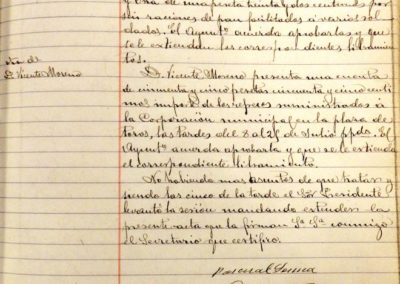 y otra de una peseta treinta y dos centimos por
seis raciones de pan facilitadas á varios sol-
dados. El Ayuntº acuerda aprobarlas y que
se le extiendan los correspondientes libramien-
tos.
Cta. de
D. Vicente Moreno
D. Vicente Moreno presenta una cuenta
de cincuenta y cinco pesetas cincuenta y cinco cénti-
mos importe de los efectos suministrados á
la Corporación municipal en la plaza de
toros, las tardes del 8 al 25 de Julio ppdo. El
Ayuntº acuerda aprobarla y que se le extienda
el correspondiente libramiento.
No habiendo mas asuntos de que tratar y
siendo las cinco de la tarde el Sor. Presidente
levantó la sesión mandando extender la
presente acta que la firman Sª Sª conmigo
el Secretario que certifico.
Pascual